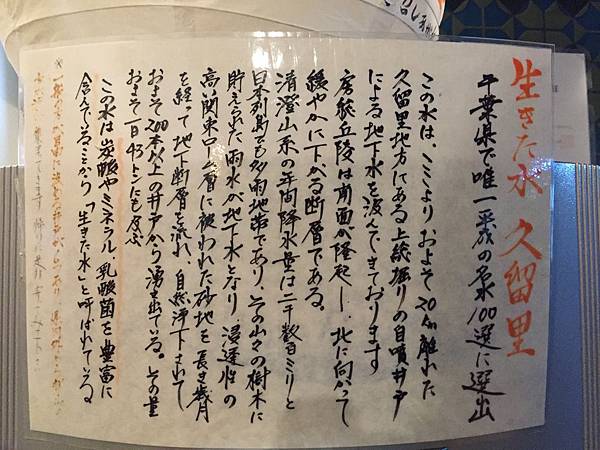 生きた水 久留里
千葉県で唯一平成の名水100選に選出
この水は、ここよりおよそ20km離れた
久留里地方にある上総掘りの自噴井戸
による地下水を汲んできております
房総丘陵は南面が隆起し、北に向かって
緩やかに下がる断層である。
清澄山系の年間降水量は二千数百ミリと
日本列島でも多雨地帯であり、その山々の樹木に
貯えられた雨水が地下水となり、浸透性の
高い関東ローム層に被われた砂地を長き歳月
を経て地下断層を流れ、自然浄下されて
およそ200本以上の井戸から湧き出ている。その量
およそ日45トンにも及ぶ
この水は炭酸やミネラル、乳酸菌を豊富に
含んでいることから「生きた水」と呼ばれている